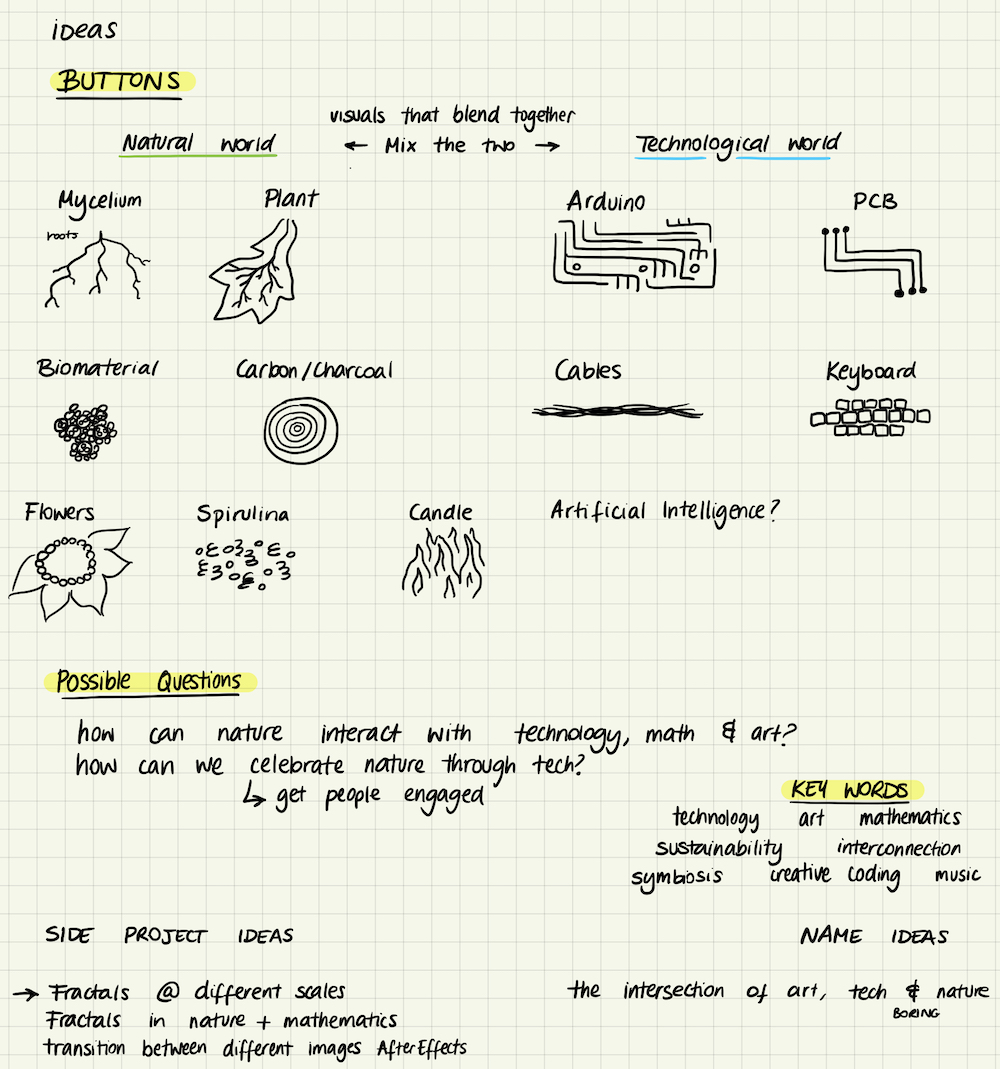 ideas
BUTTONS
visuals that blend together
Natural world ← Mix the two → Technological world
Mycelium Plant Arduino PCB
roots
Biomaterial Carbon/Charcoal Cables Keyboard
Flowers Spirulina Candle Artificial Intelligence?
Possible Questions
how can nature interact with technology, math & art?
how can we celebrate nature through tech?
↳ get people engaged
KEY WORDS
technology art mathematics
sustainability interconnection
symbiosis creative coding music
SIDE PROJECT IDEAS
→ Fractals @ different scales
Fractals in nature + mathematics
transition between different images AfterEffects
NAME IDEAS
the intersection of art, tech & nature
BORING